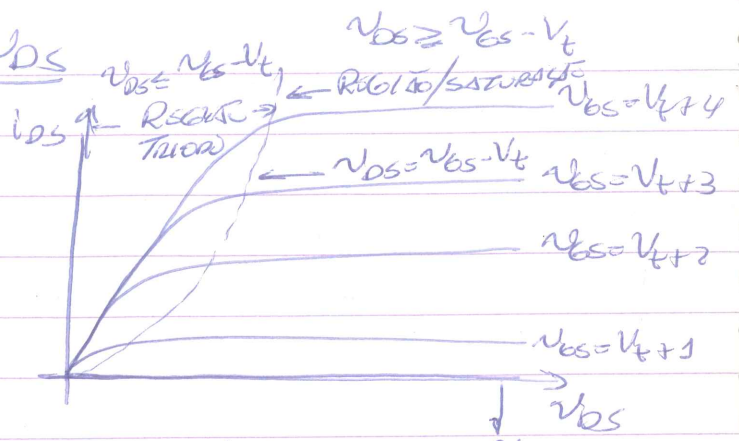 v_DS
v_DS ≥ v_GS - V_t
v_DS ≤ v_GS - V_t
← REGIÃO/SATURAÇÃO
i_DS
← REGIÃO →
TRIODO
v_GS = V_t + 4
← v_DS = v_GS - V_t
v_GS = V_t + 3
v_GS = V_t + 2
v_GS = V_t + 1
v_DS